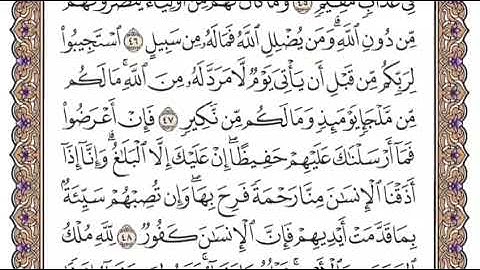 فِي عَذَابٍ مُّقِيمٍ ٤٥ وَمَا كَانَ لَهُم مِّنْ أَوْلِيَآءَ يَنصُرُونَهُم
مِّن دُونِ ٱللَّهِۗ وَمَن يُضْلِلِ ٱللَّهُ فَمَا لَهُۥ مِن سَبِيلٍ ٤٦ ٱسْتَجِيبُوا۟
لِرَبِّكُم مِّن قَبْلِ أَن يَأْتِىَ يَوْمٌ لَّا مَرَدَّ لَهُۥ مِنَ ٱللَّهِۚ مَا لَكُم
مِّن مَّلْجَإٍ يَوْمَئِذٍ وَمَا لَكُم مِّن نَّكِيرٍ ٤٧ فَإِنْ أَعْرَضُوا۟
فَمَآ أَرْسَلْنَٰكَ عَلَيْهِمْ حَفِيظًاۖ إِنْ عَلَيْكَ إِلَّا ٱلْبَلَٰغُۗ وَإِنَّآ إِذَآ
أَذَقْنَا ٱلْإِنسَٰنَ مِنَّا رَحْمَةً فَرِحَ بِهَاۖ وَإِن تُصِبْهُمْ سَيِّئَةٌۢ
بِمَا قَدَّمَتْ أَيْدِيهِمْ فَإِنَّ ٱلْإِنسَٰنَ كَفُورٌ ٤٨ لِّلَّهِ مُلْكُ